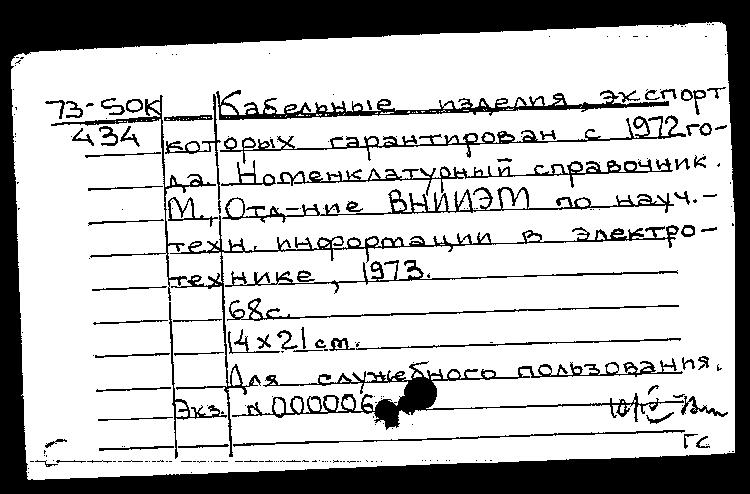 73-50К Кабельные изделия, экспорт
434 которых гарантирован с 1972 го-
да. Номенклатурный справочник.
М., Отд-ние ВНИИЭМ по науч.-
техн. информации в электро-
технике, 1973.
68с.
14х21 cm.
Для служебного пользования.
Экз. N 000006
ГС